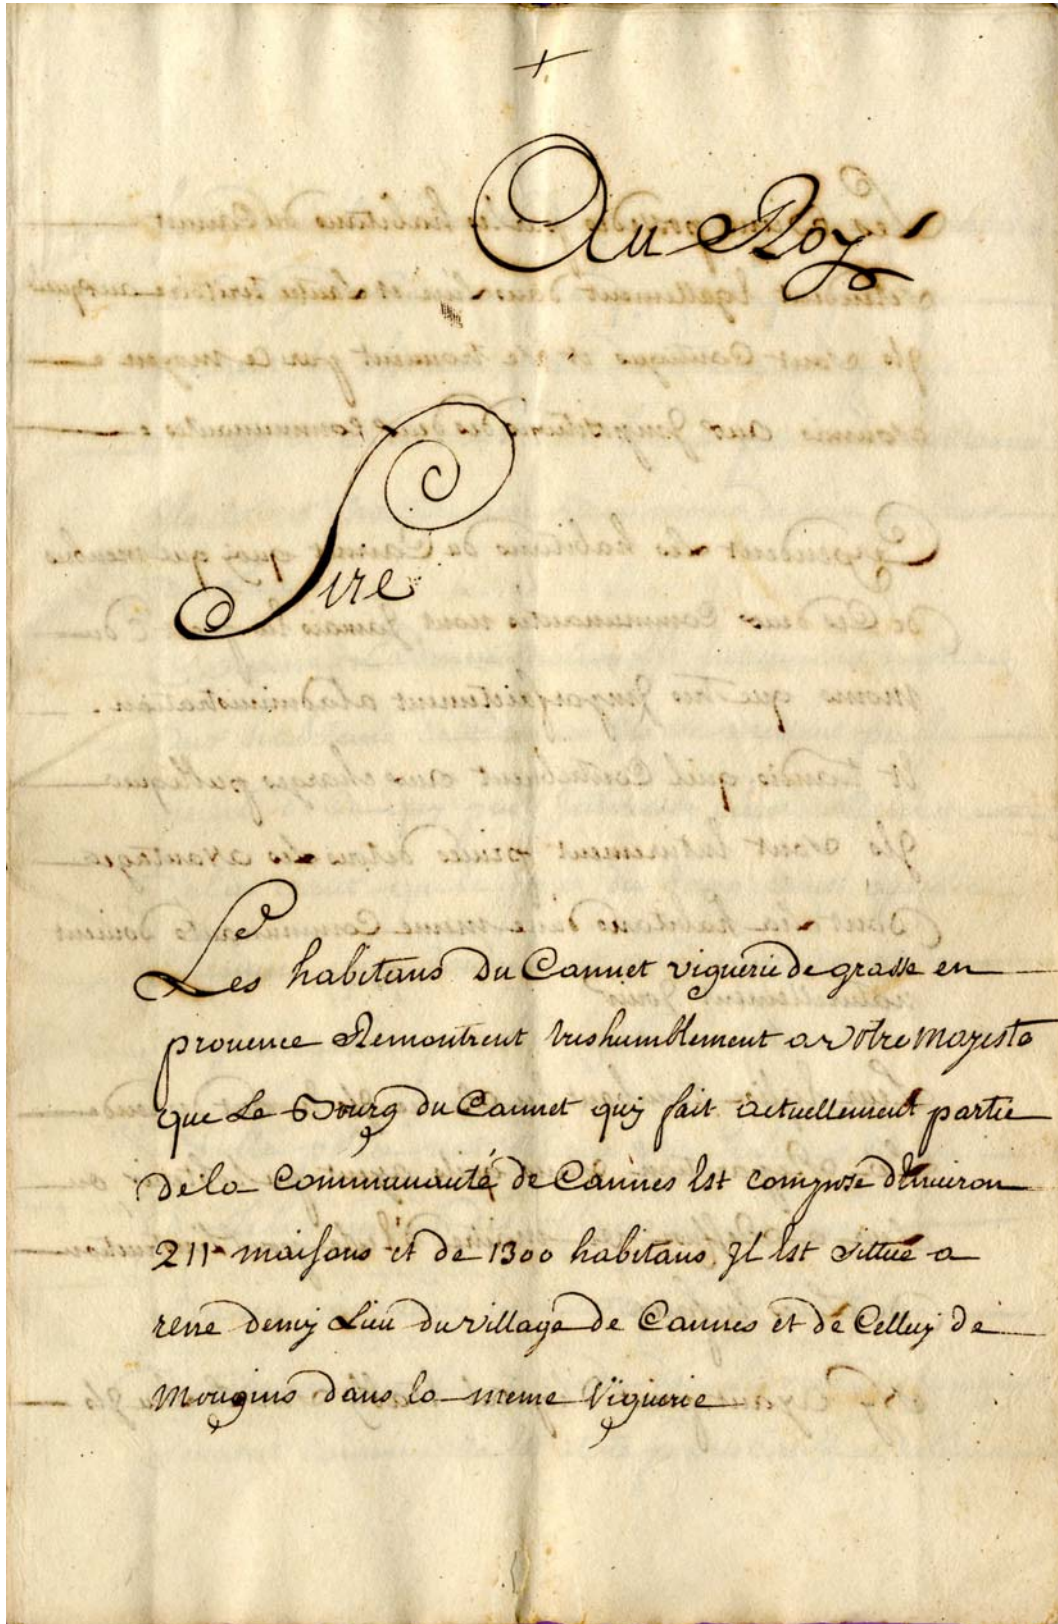 Au Roy
Sire
Les habitans du Cannet viguerie de grasse en
prouence Remontrent treshumblement a votre majesté
que Le Bourg du Cannet quj fait actuellement partie
de la communauté de Cannes Est composé dEnuiron
211 maisons et de 1300 habitans. Jl Est sittué a
une demj Lieu du village de Cannes et de Celluj de
mougins dans la meme viguerie